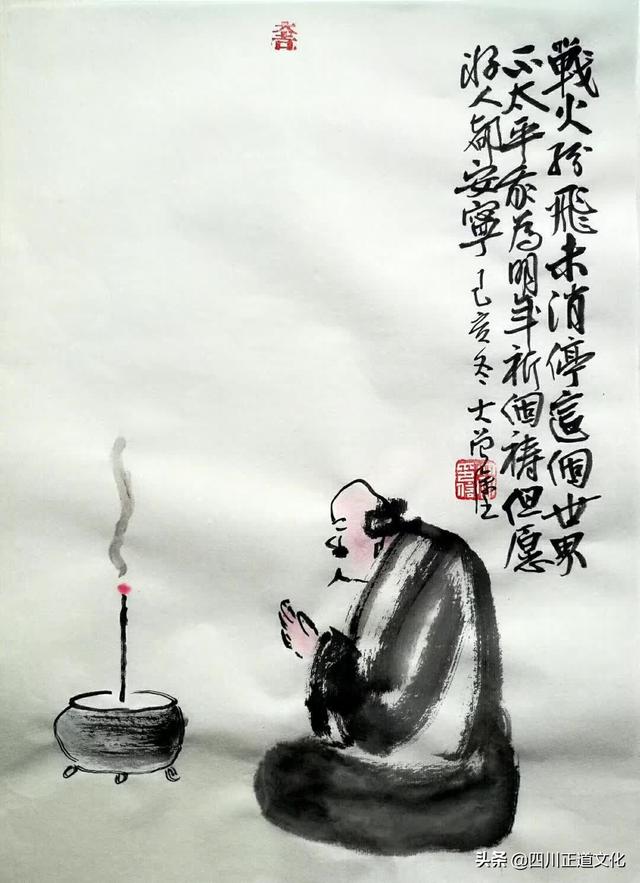 戰火紛飛未消停這個世界
不太平我為明年祈個禱但愿
好人都安寧 己亥冬 大曾
头条 @四川正道文化